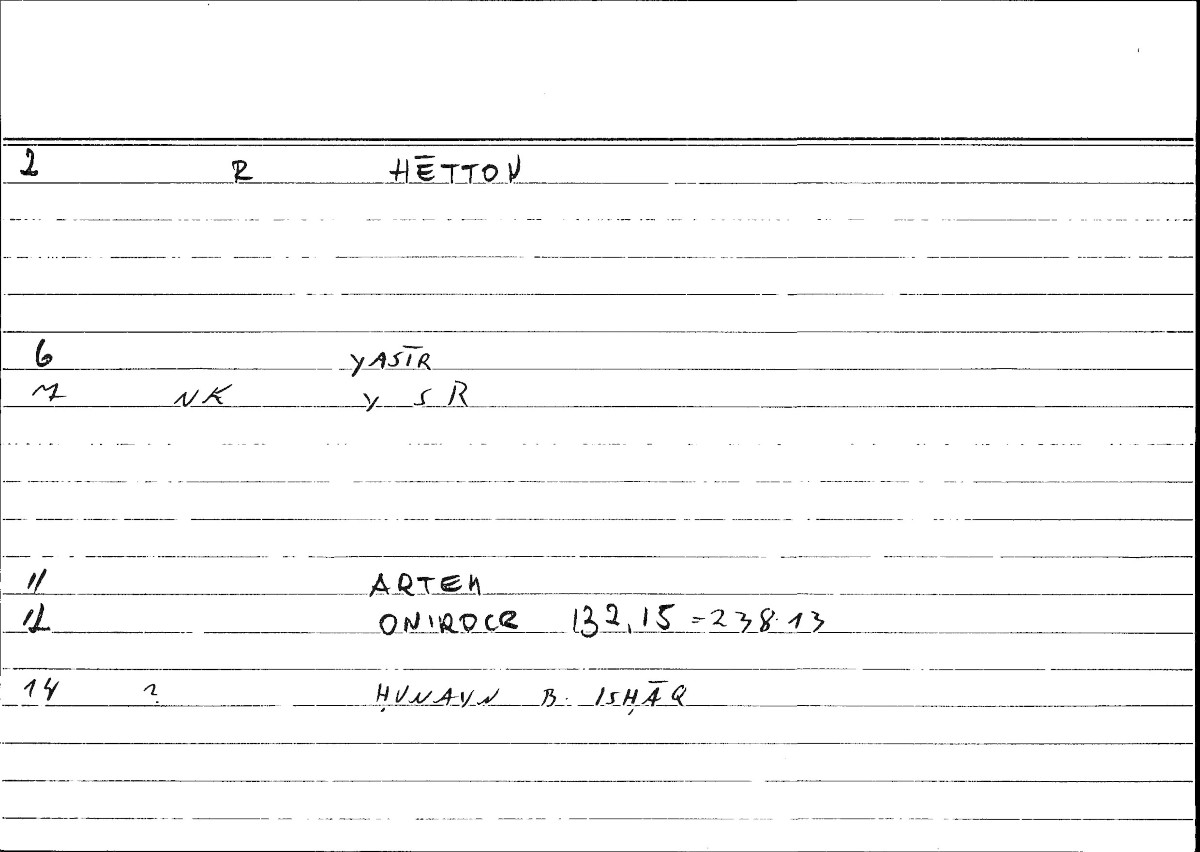 2 R HĒTTON
6 YASĪR
7 NK Y S R
11 ARTEM
12 ONIROCR 132,15 = 238.13
14 ? ḤUNAYN B. ISḤĀQ